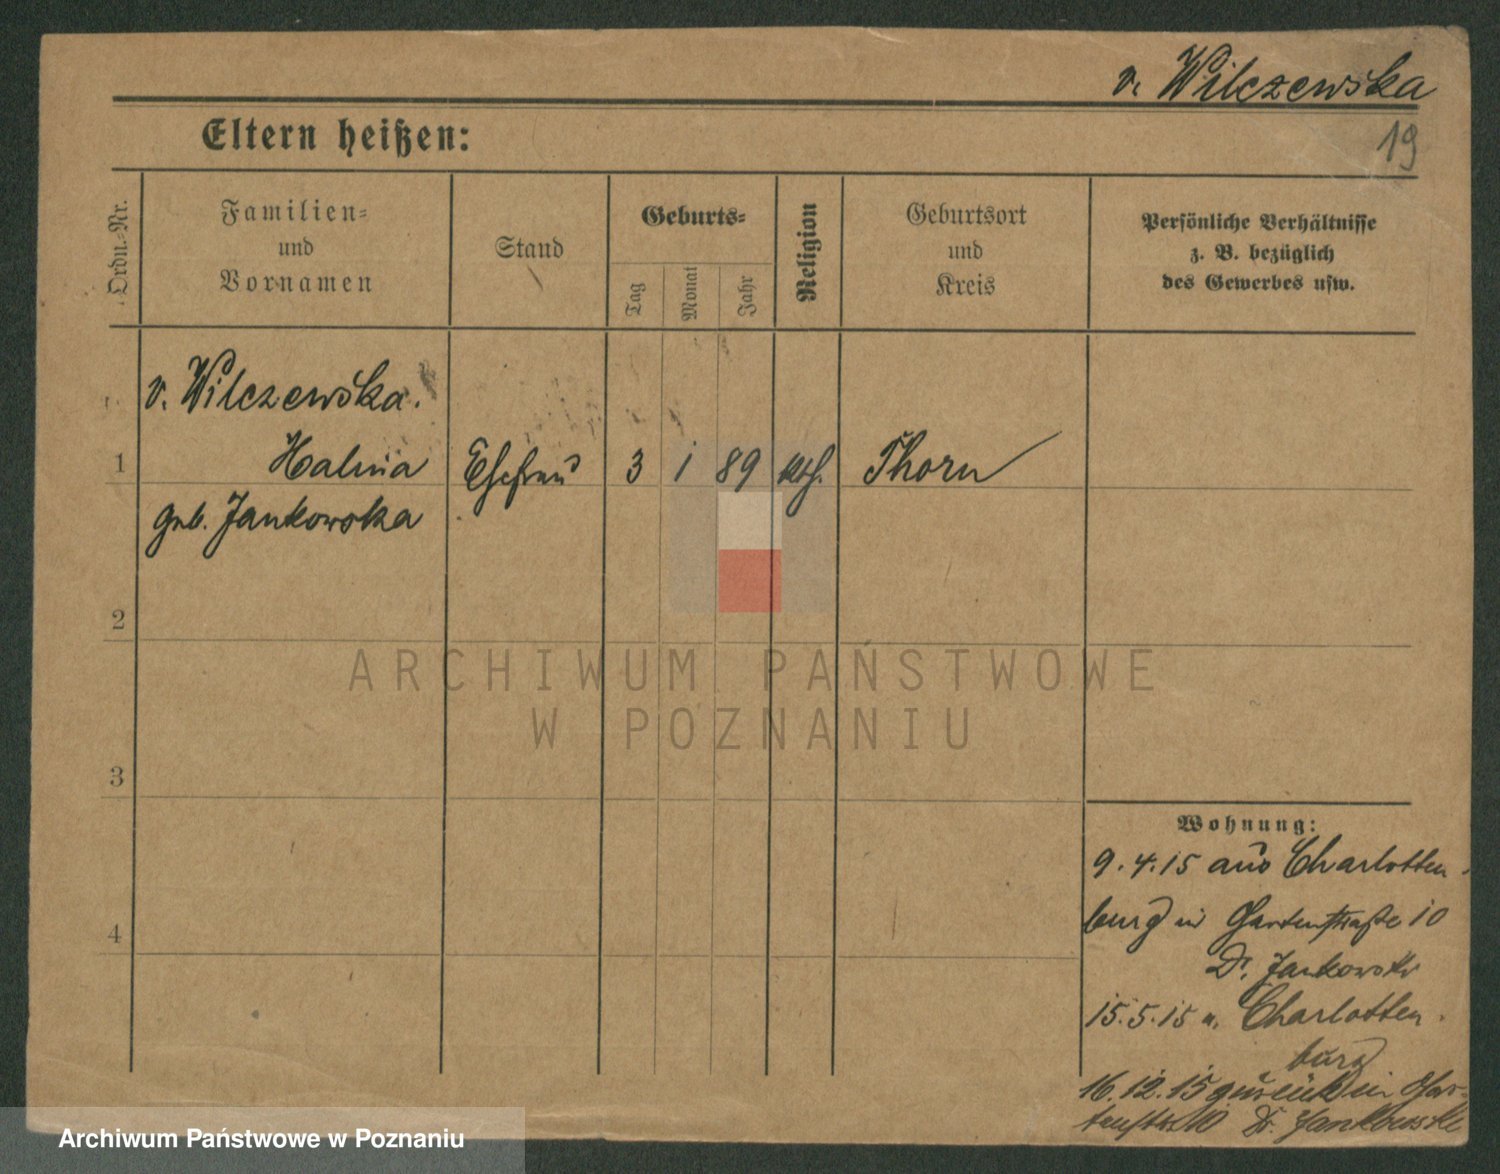 v. Wilczewska
19
Eltern heißen:
Ordn.-Nr.
Familien-
und
Vornamen
Stand
Geburts-
Tag
Monat
Jahr
Religion
Geburtsort
und
Kreis
Persönliche Verhältnisse
z. B. bezüglich
des Gewerbes usw.
v. Wilczewska.
1 Halina Ehefrau 3 1 89 kth. Thorn
geb. Jankowska
2
3
4
Wohnung:
9.4.15 aus Charlotten-
burg in Gartenstraße 10
Dr. Jankowski
15.5.15 n. Charlotten-
burg
16.12.15 zurück in Gar-
tenstr. 10 Dr. Jankowski
ARCHIWUM PAŃSTWOWE
W POZNANIU
Archiwum Państwowe w Poznaniu